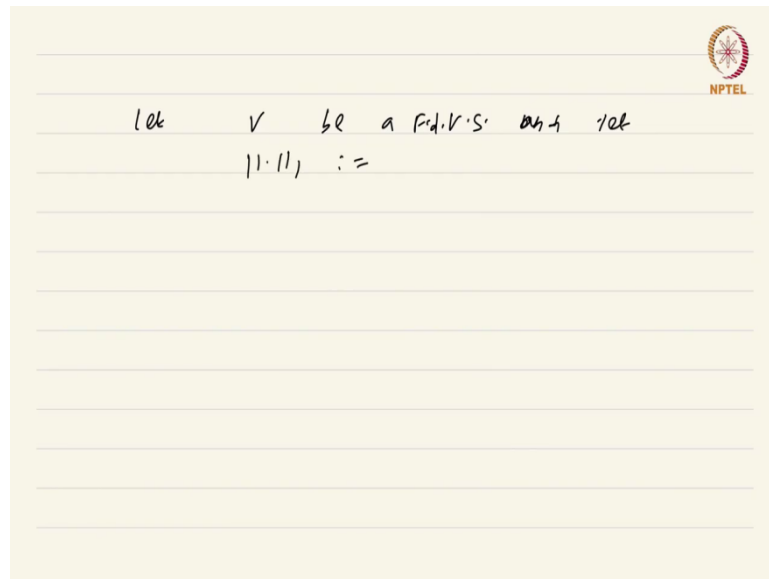 NPTEL
let V be a F.d.V.S. and let
||·||₁ :=